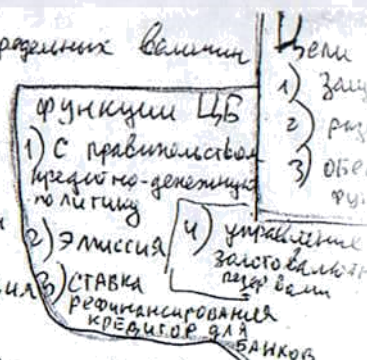 величин
Цели
1)
2)
3)
функции ЦБ
1) С правительством
кредитно-денежную
политику
2) Эмиссия
3) СТАВКА
рефинансирования
КРЕДИТОР ДЛЯ
БАНКОВ
4) управление
золотовалютн
резервами